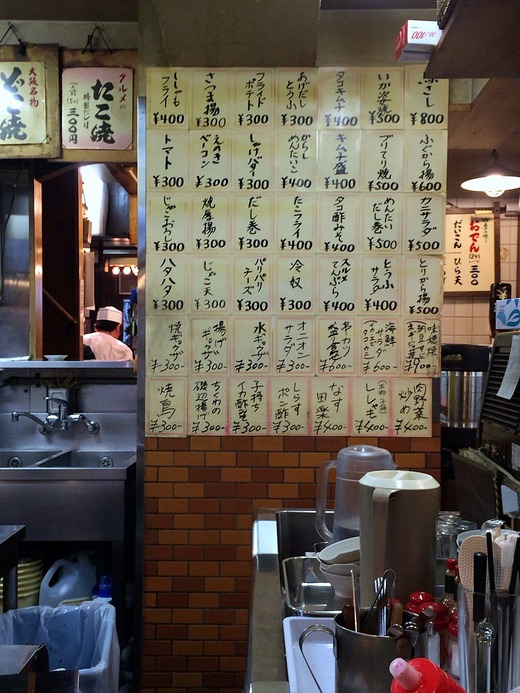 大阪名物
グルメの
たこ焼
三〇〇円
ししゃも
フライ
¥400
さつま揚
¥300
フライド
ポテト
¥300
あげだし
とうふ
¥300
タコキムチ
¥400
いか姿焼
¥300
¥800
トマト
¥300
えのき
ベーコン
¥300
しゃけバター
¥300
からし
めんたいこ
¥400
キムチ盛
¥400
ブリてり焼
¥500
小ぐから揚
¥600
じゃこおろし
¥300
焼厚揚
¥300
だし巻
¥300
たこフライ
¥400
タコ酢みそ
¥400
めんたい
だし巻
¥500
カニサラダ
¥500
ハタハタ
¥300
じゃこ天
¥300
パリパリ
チーズ
¥300
冷奴
¥300
スルメ
てんぷら
¥400
とうふ
サラダ
¥400
とりから揚
¥500
焼ギョウザ
¥300-
揚げ
ギョウザ
¥300-
水ギョウザ
¥300-
オニオン
サラダ
¥300-
串カツ
盛合
¥600-
海鮮
サラダ
¥600-
¥900-
焼鳥
¥300-
ちくわの
磯辺揚げ
¥300-
子持ち
イカ酢
¥300-
しらす
ポン酢
¥300-
なす
田楽
¥400-
ししゃも
¥400-
肉野菜
炒め
¥400-
おでん
三〇〇
だいこん ひら天